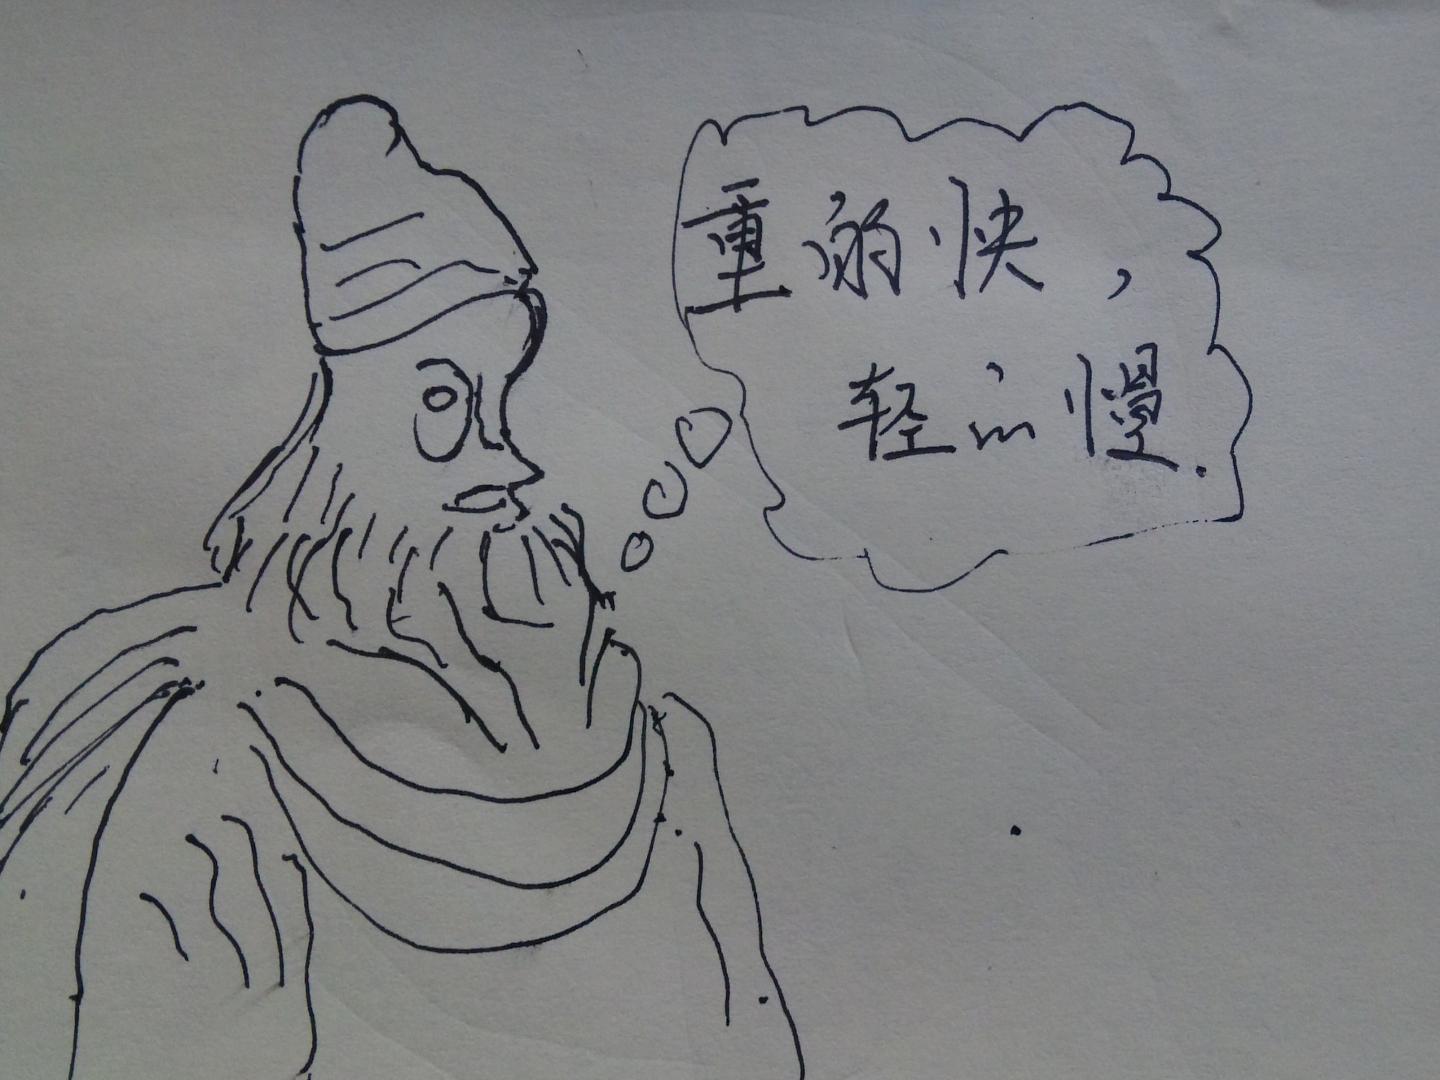 重的快，
轻的慢.